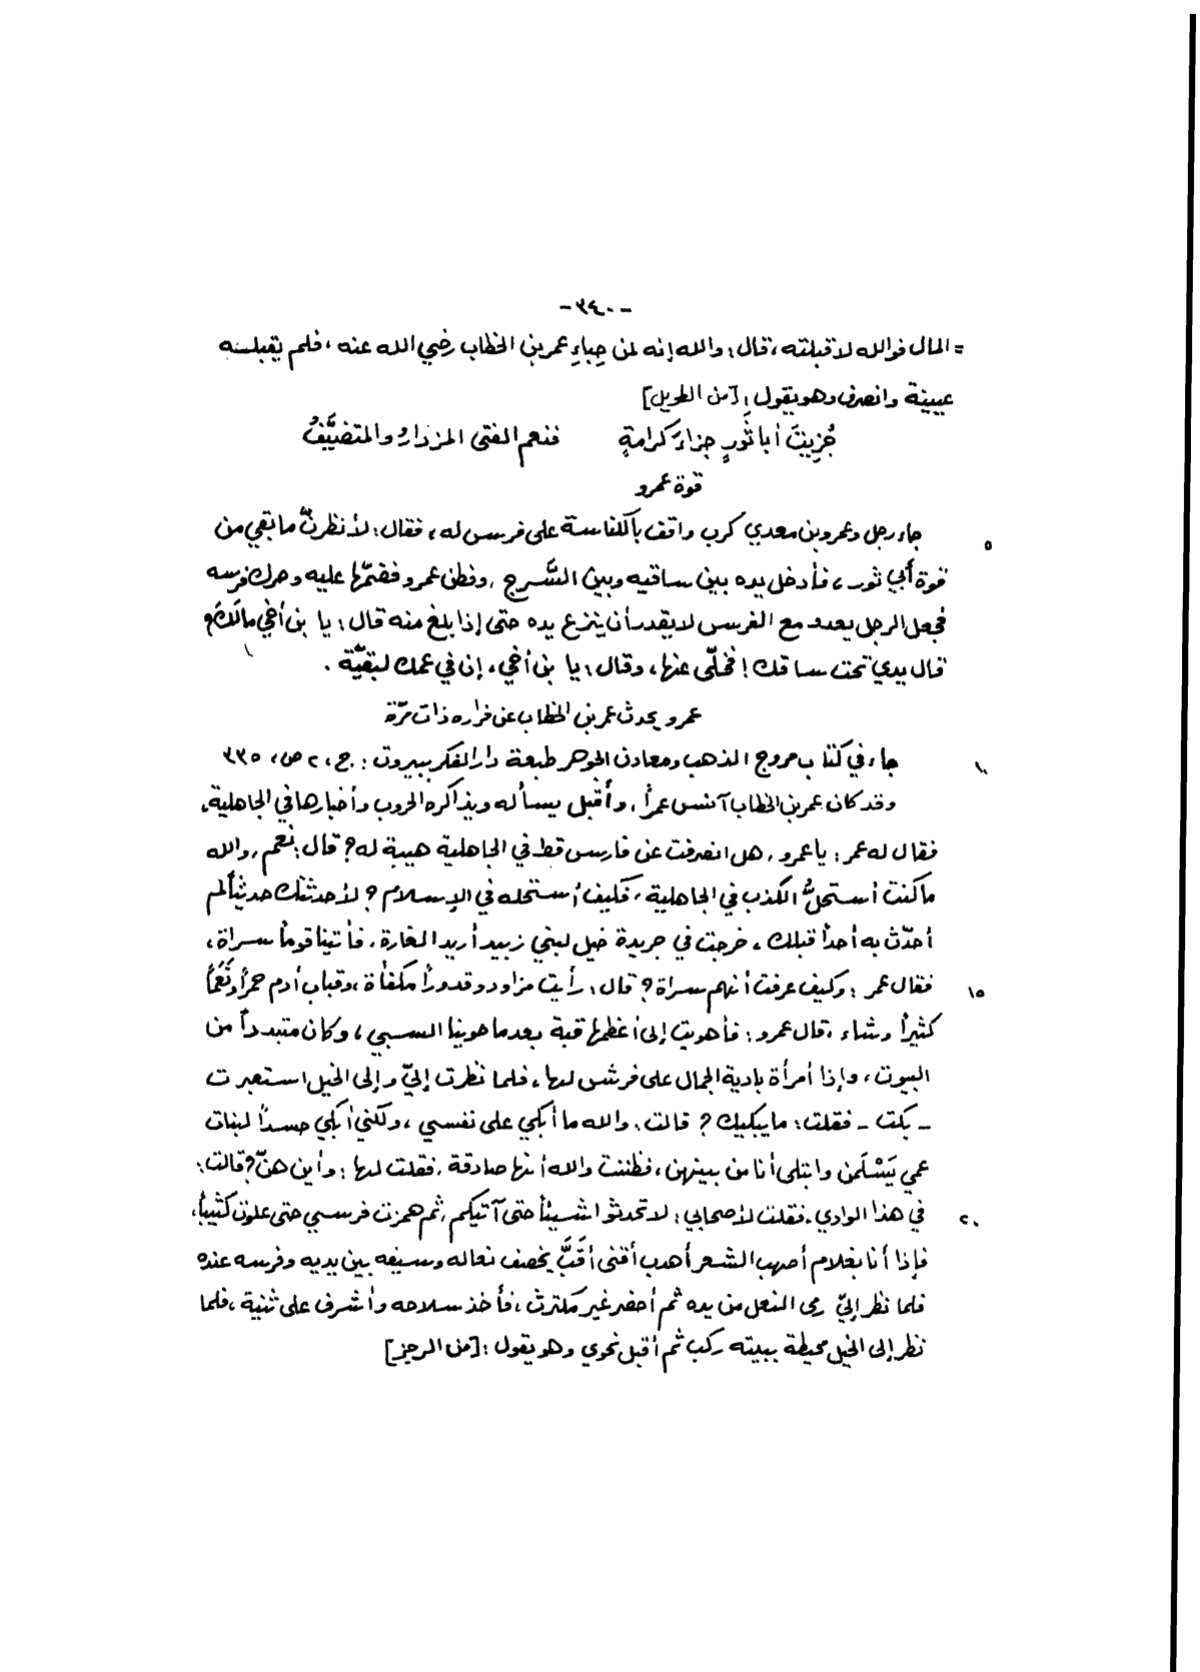 -٣٤٠-
= المال فوالله لا قبلته، قال: والله إنه لمن حِباءِ عمر بن الخطاب رضي الله عنه، فلم يقبله
عيينة وانصرف وهو يقول: [من الطويل]
جُزِيتَ أبا ثَورٍ جزاءَ كرامةٍ فنعم الفتى المزدارُ والمتضيَّفُ
قوة عمرو
جاء رجل وعمرو بن معدي كرب واقف بالكناسة على فرس له، فقال: لأنظرنّ ما بقي من
٥
قوة أبي ثور، فأدخل يده بين ساقيه وبين السَّرج، وفطن عمرو فضمّها عليه وحرك فرسه
فجعل الرجل يعدو مع الفرس لا يقدر أن ينزع يده حتى إذا بلغ منه قال: يا بن أخي مالَكَ؟
قال يدي تحت ساقك! فخلّى عنها، وقال: يا بن أخي، إن في عمك لبقيّة.
عمرو يحدث عمر بن الخطاب عن فراره ذات مرّة
جاء في كتاب مروج الذهب ومعادن الجوهر طبعة دار الفكر ببيروت: ج، ٢ ص، ٣٣٥
١٠
وقد كان عمر بن الخطاب آنس عمراً، وأقبل يسأله ويذاكره الحروب وأخبارها في الجاهلية،
فقال له عمر: يا عمرو، هل انصرفت عن فارس قط في الجاهلية هيبة له؟ قال: نعم، والله
ما كنت أستحلُّ الكذب في الجاهلية، فكيف أستحله في الإسلام؟ لأحدثنك حديثاً لم
أحدّث به أحداً قبلك، خرجت في جريدة خيل لبني زبيد أريد الغارة، فأتينا قوماً سراة،
فقال عمر: وكيف عرفت أنهم سراة؟ قال: رأيت مزاود وقدوراً مكفأة، وقباب أدم حمراً ونَعَماً
١٥
كثيراً وشاء، قال عمرو: فأهويت إلى أعظمها قبة بعدما حوينا السبي، وكان متبدداً من
البيوت، وإذا أمرأة بادية الجمال على فرش لها، فلما نظرت إليّ وإلى الخيل استعبرت
- بكت - فقلت: ما يبكيك؟ قالت: والله ما أبكي على نفسي، ولكني أبكي حسداً لبنات
عمي يَسْلَمن وابتلى أنا من بينهن، فظننت والله أنها صادقة، فقلت لها: وأين هنّ؟ قالت:
في هذا الوادي، فقلت لأصحابي: لا تحدثوا شيئاً حتى آتيكم، ثم همزت فرسي حتى علوت كثيباً،
٢٠
فإذا أنا بغلام أصهب الشعر أهدب أقنى أقَبَّ يخصف نعاله وسيفه بين يديه وفرسه عنده
فلما نظر إليّ رمى النعل من يده ثم أحضر غير مكترث، فأخذ سلاحه وأشرف على ثنية، فلما
نظر إلى الخيل محيطة ببيته ركب ثم أقبل نحوي وهو يقول: [من الرجز]